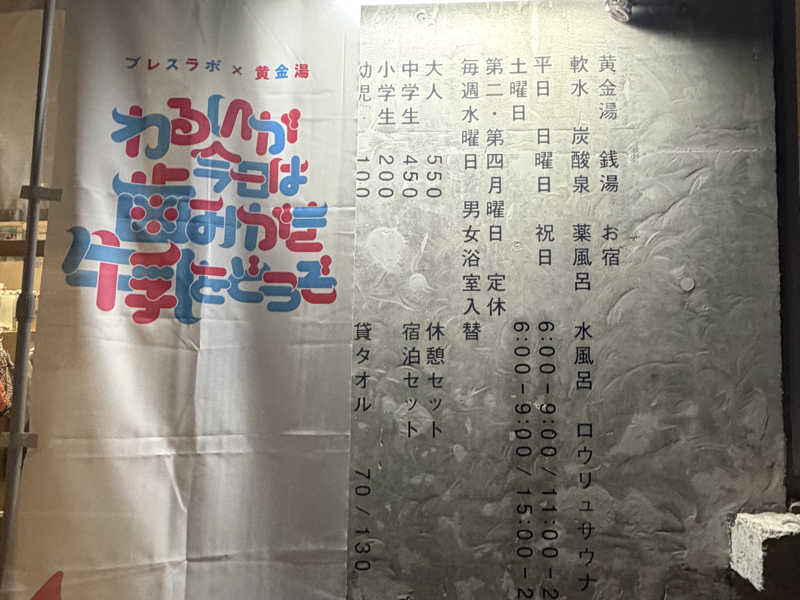 プレスラボ × 黄金湯
わるいが
今日は
歯みがき
牛乳をどうぞ
黄金湯 銭湯 お宿
軟水 炭酸泉 薬風呂 水風呂 ロウリュサウナ
平日 日曜日 祝日 6:00-9:00/11:00-2
土曜日 6:00-9:00/15:00-2
第二・第四月曜日 定休
毎週水曜日 男女浴室入替
大人 550 休憩セット
中学生 450 宿泊セット
小学生 200
幼児 100 貸タオル 70/130